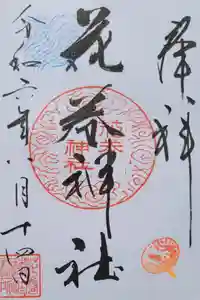 奉拝
花巻神社
令和六年八月十四日